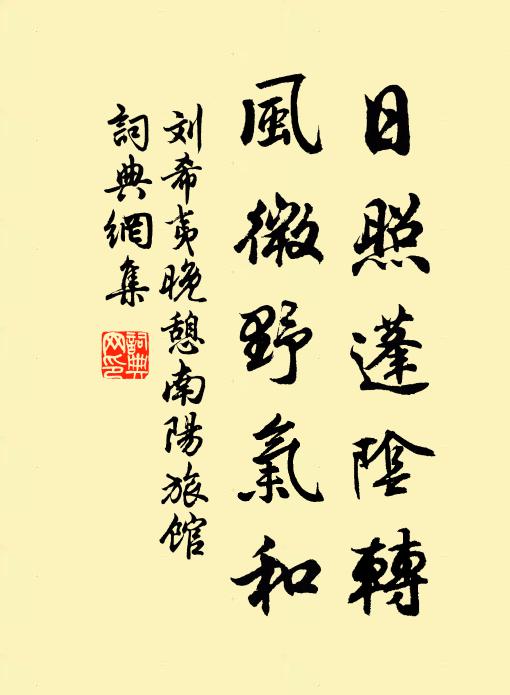 日照蓬陰轉
風微野氣和
刘希夷晚憩南陽旅館
詞典網集
詞典网印